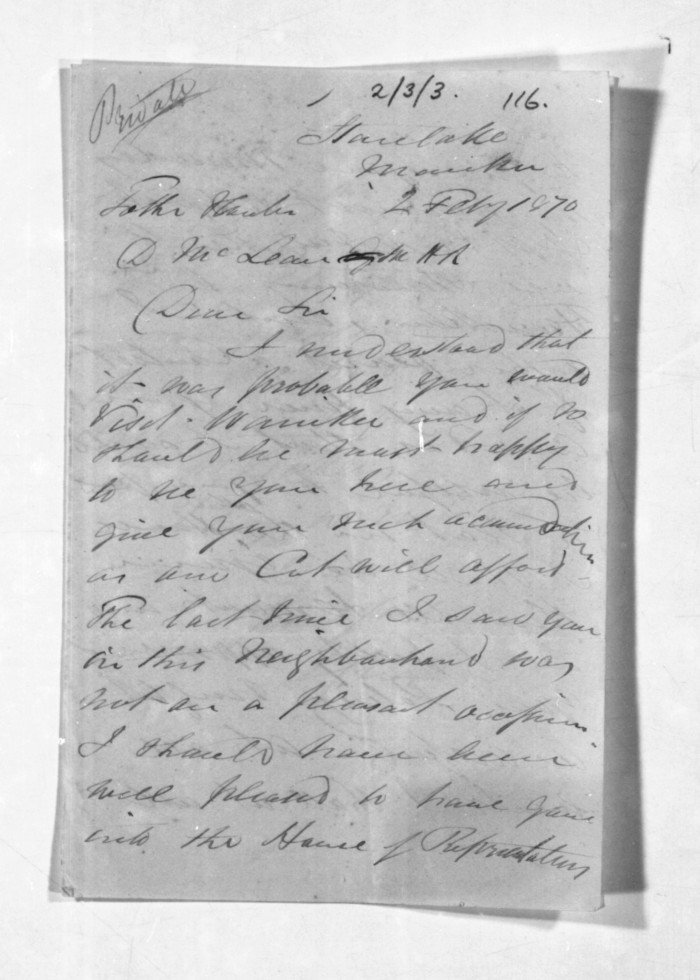 Private
2/3/3. 116.
2 Feby 1870
D McLean M H R
Dear Sir
I understand that
it was probable you would
visit and if so
should be most happy
to see you here and
give you such accommodation
as our Cot will afford
The last time I saw you
in this Neighbourhood was
not on a pleasant occasion.
I should have been
well pleased to have gone
into the House of Representatives